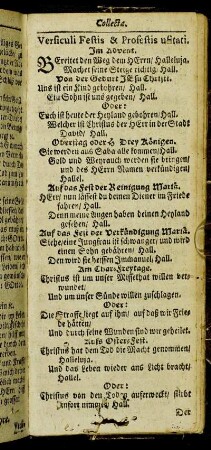 Collecta.
Versiculi Festis & Profestis usitati.
Im Advent.
Bereitet den Weg dem HErrn / Halleluja.
Machet seine Steige richtig / Hall.
Von der Geburt JEsu Christi.
Uns ist ein Kind gebohren / Hall.
Ein Sohn ist uns gegeben / Hall.
Oder:
Euch ist heute der Heyland gebohren / Hall.
Welcher ist Christus der HErr in der Stadt
David / Hall.
Obertag oder H. Drey Königen.
Sie werden aus Saba alle kommen / Hall.
Gold und Weyrauch werden sie bringen /
und des HErrn Namen verkündigen /
Hallel.
Auf das Fest der Reinigung Mariä.
HErr nun lässest du deinen Diener im Friede
fahren / Hall.
Denn meine Augen haben deinen Heyland
gesehen / Hall.
Auf das Fest der Verkündigung Mariä.
Siehe / eine Jungfrau ist schwanger / und wird
einen Sohn gebähren / Hall.
Den wird sie heissen Immanuel / Hall.
Am Char-Freytage.
Christus ist um unser Missethat willen ver-
wundet.
Und um unser Sünde willen zuschlagen.
Oder:
Die Straffe liegt auf ihm / auf daß wir Frie-
de hätten /
Und durch seine Wunden sind wir geheilet.
Aufs Oster-Fest.
Christus hat dem Tod die Macht genommen /
Halleluja.
Und das Leben wieder ans Licht bracht /
Hallel.
Oder:
Christus von den Todten auferweckt / stirbt
hinfort nimmer / Hall.
Der